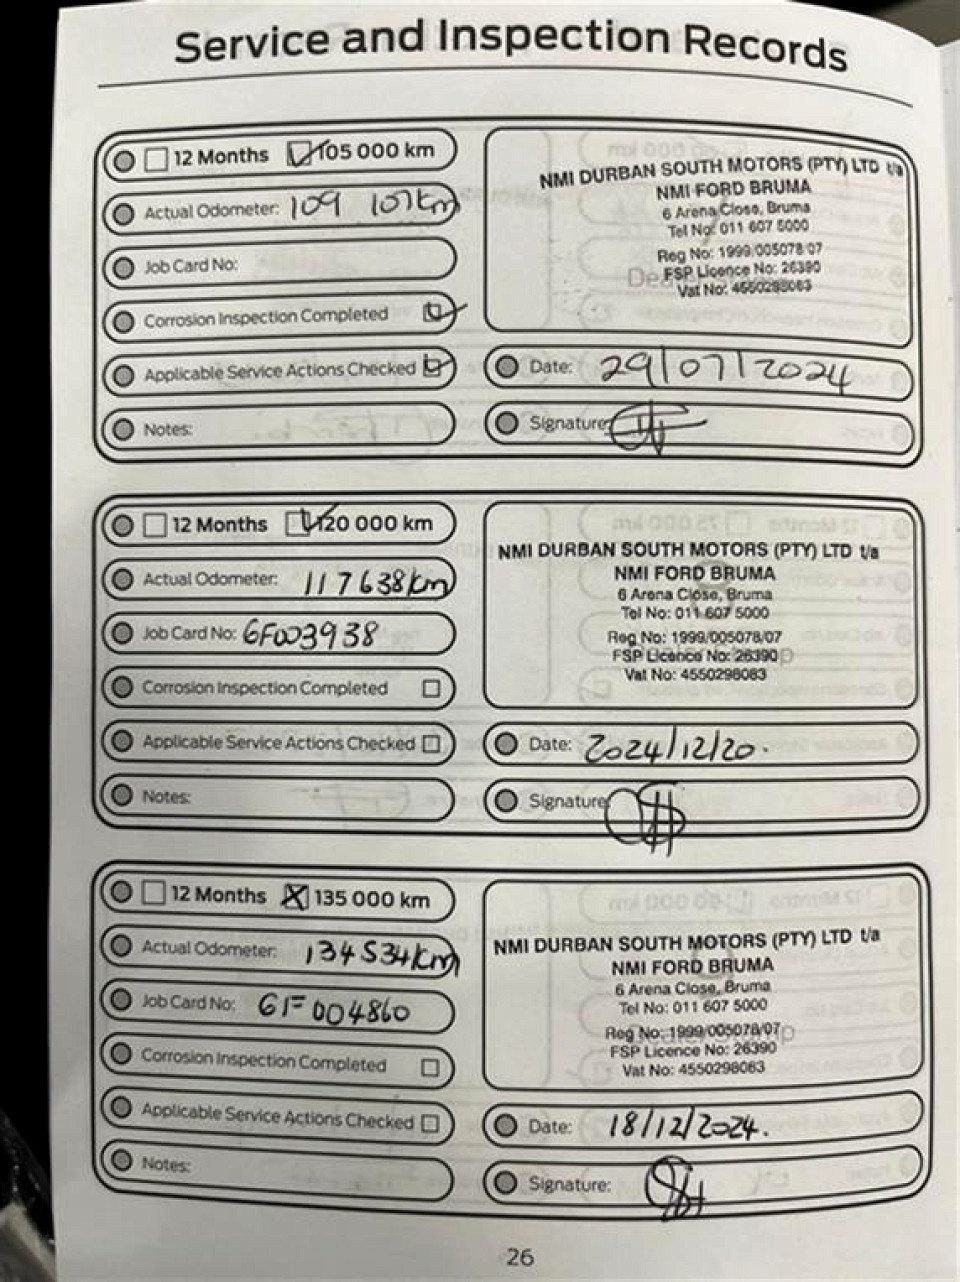 Service and Inspection Records
12 Months 105 000 km
Actual Odometer: 109 107km
Job Card No:
Corrosion Inspection Completed
Applicable Service Actions Checked
Notes:
NMI DURBAN SOUTH MOTORS (PTY) LTD t/a
NMI FORD BRUMA
6 Arena Close, Bruma
Tel No: 011 607 5000
Reg No: 1999/005078/07
FSP Licence No: 26390
Vat No: 4550298083
Date: 29/07/2024
Signature:
12 Months 120 000 km
Actual Odometer: 117638km
Job Card No: 6F003938
Corrosion Inspection Completed
Applicable Service Actions Checked
Notes:
NMI DURBAN SOUTH MOTORS (PTY) LTD t/a
NMI FORD BRUMA
6 Arena Close, Bruma
Tel No: 011 607 5000
Reg No: 1999/005078/07
FSP Licence No: 26390
Vat No: 4550298083
Date: 2024/12/20.
Signature:
12 Months 135 000 km
Actual Odometer: 134534km
Job Card No: 6F004860
Corrosion Inspection Completed
Applicable Service Actions Checked
Notes:
NMI DURBAN SOUTH MOTORS (PTY) LTD t/a
NMI FORD BRUMA
6 Arena Close, Bruma
Tel No: 011 607 5000
Reg No: 1999/005078/07
FSP Licence No: 26390
Vat No: 4550298083
Date: 18/12/2024.
Signature:
26